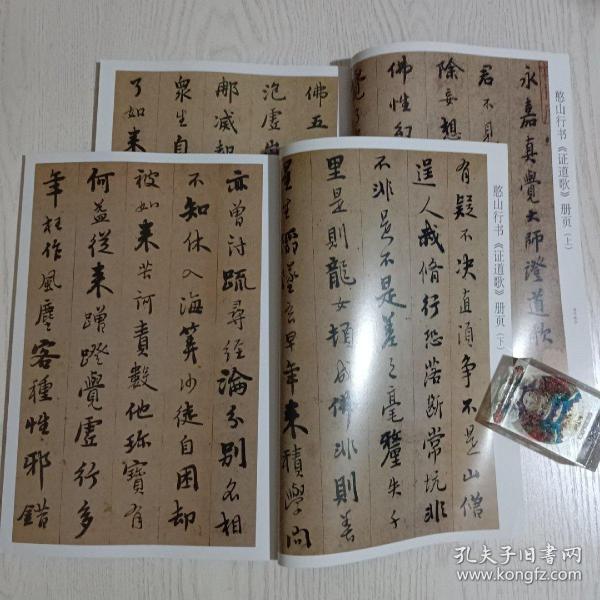 永嘉真覺大師證道歌
君不見
除妄想
佛性幻
覺了
憨山行书《证道歌》册页（上）
佛五
泡虛
那滅却
衆生自
了如来
憨山行书《证道歌》册页（下）
有疑不决直須争不是山僧
逞人我脩行恐落断常坑非
不非是不是差之毫釐失千
里是則龍女頓成佛非則善
星生陷墜吾早年来積學問
亦曾討疏尋經論分别名相
不知休入海筭沙徒自困却
被如来苦訶責數他珍寶有
何益從来蹭蹬覺虚行多
年枉作風塵客種性邪錯
孔夫子旧书网
www.kongfz.com